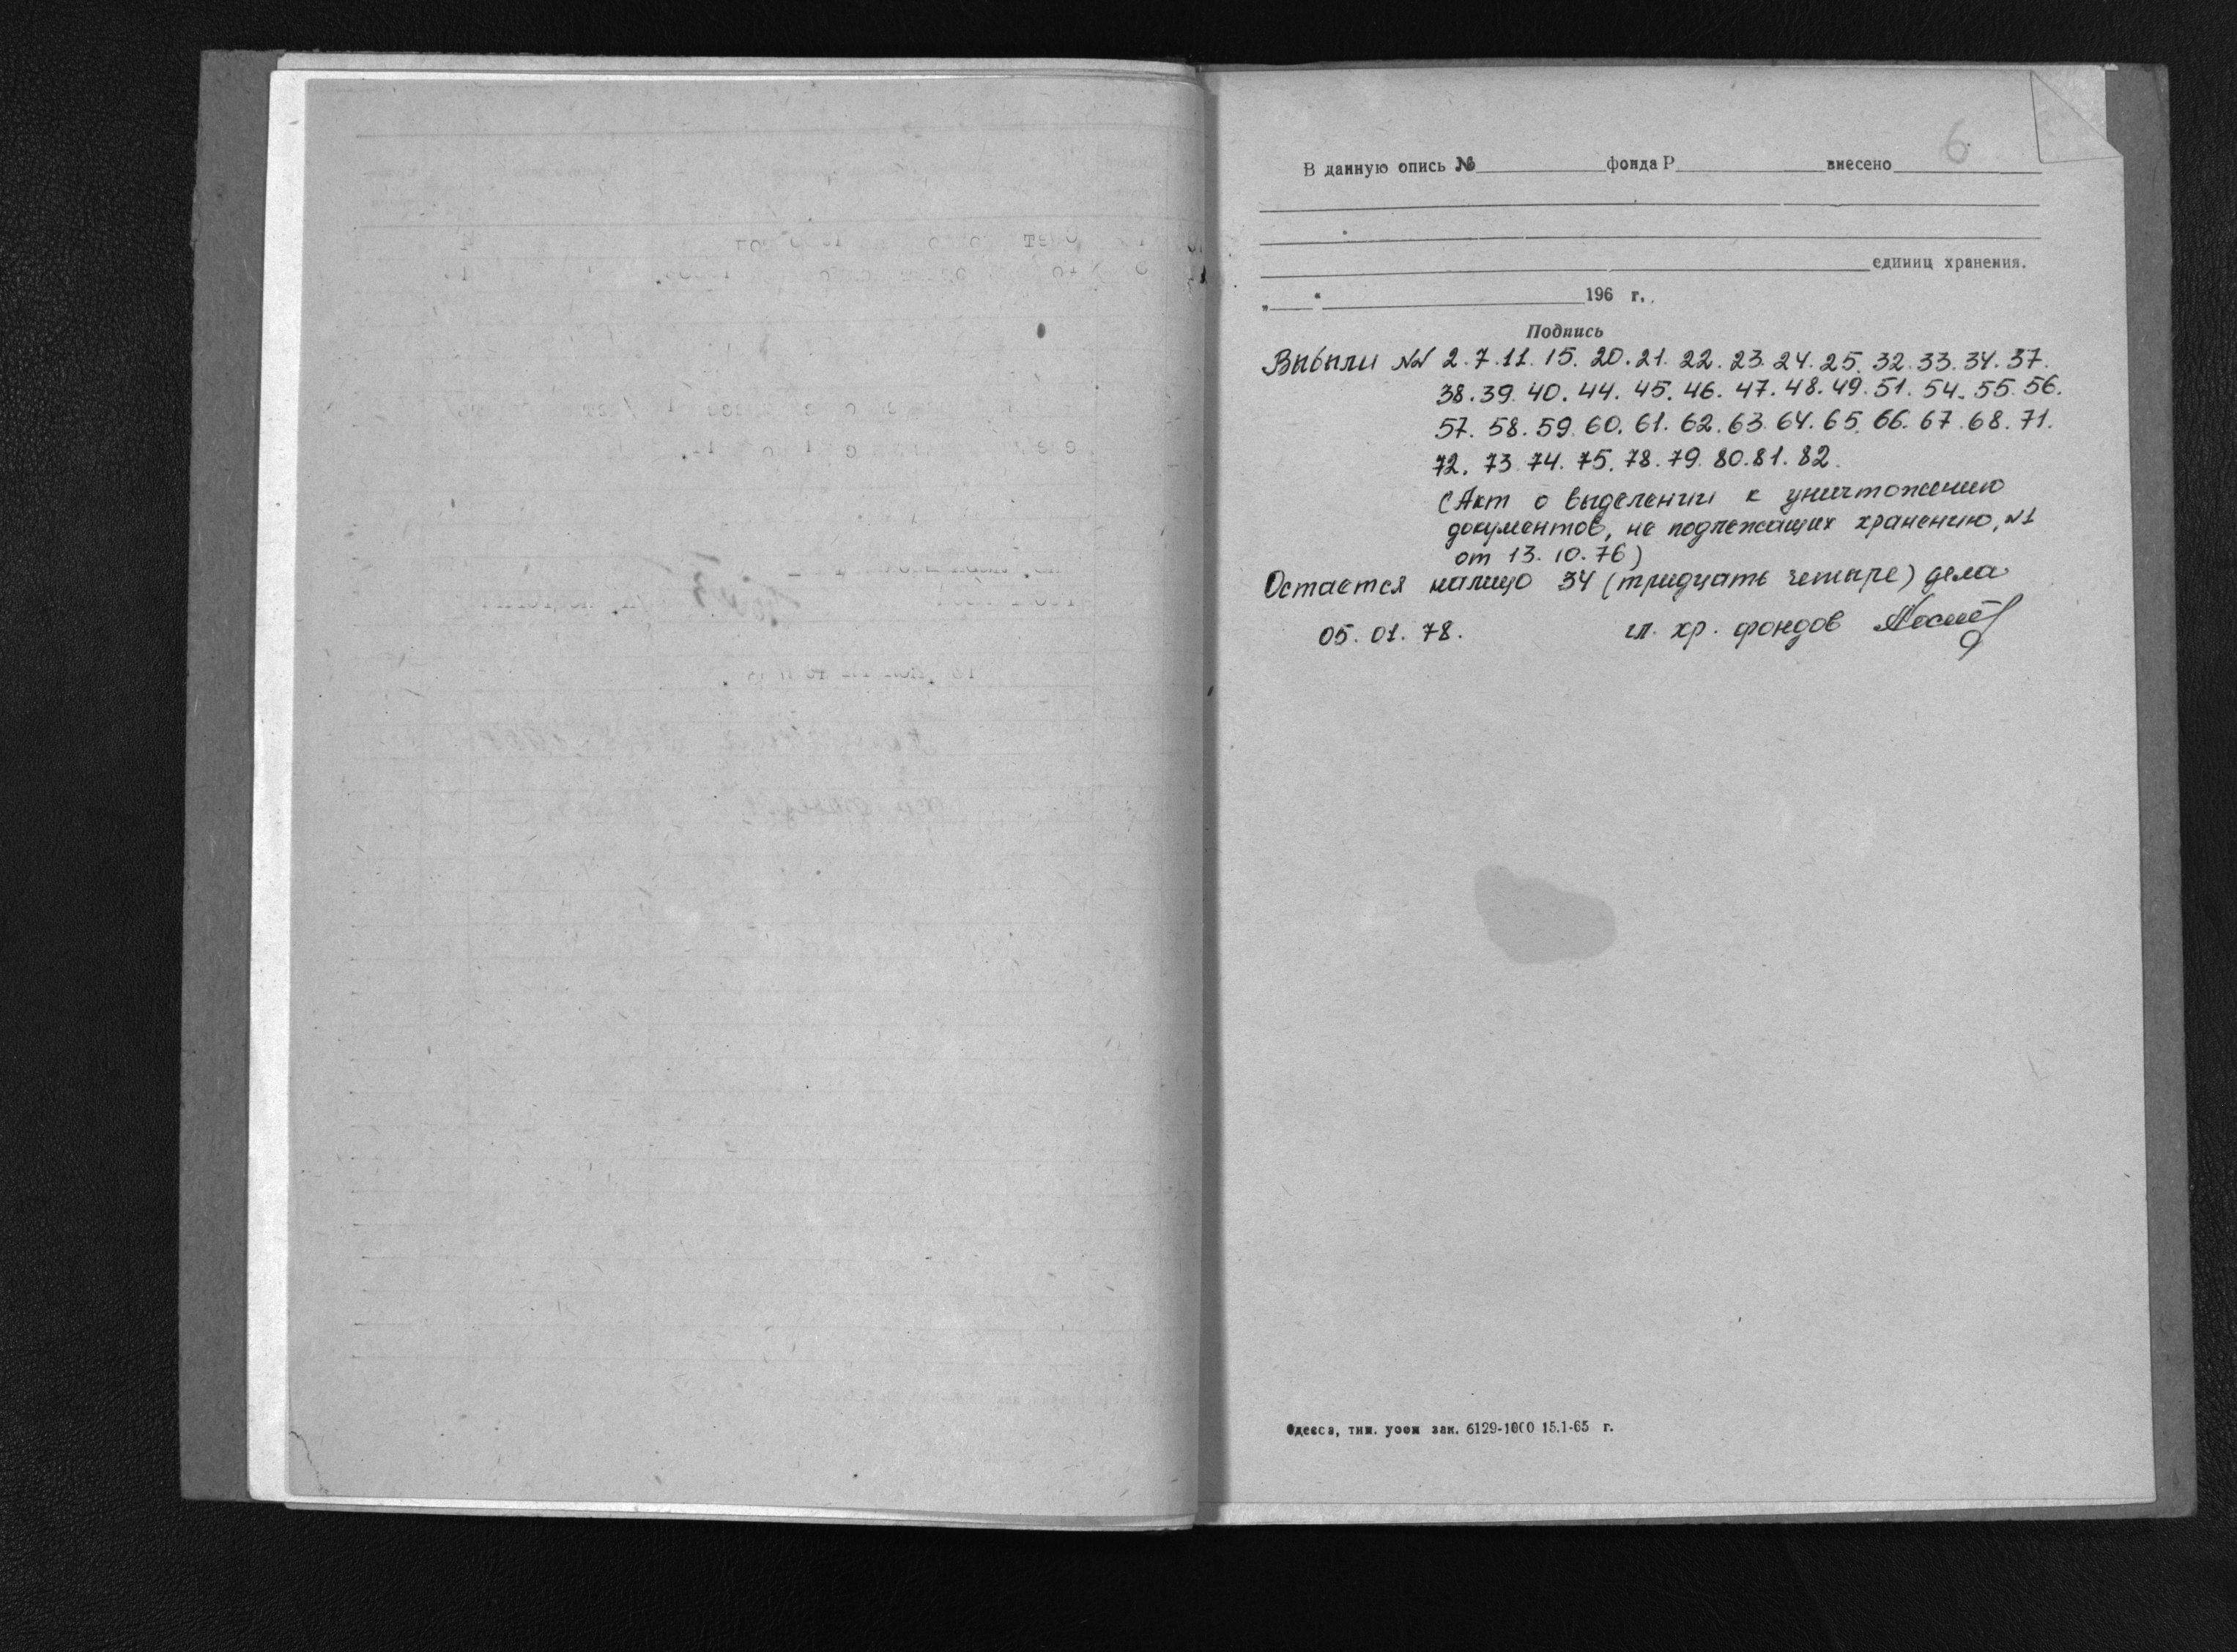 6
В данную опись № фонда Р внесено
единиц хранения.
„ “ 196 г.
Подпись
Выбыли №№ 2. 7. 11. 15. 20. 21. 22. 23. 24. 25. 32. 33. 34. 37.
38. 39. 40. 44. 45. 46. 47. 48. 49. 51. 54. 55. 56.
57. 58. 59. 60. 61. 62. 63. 64. 65. 66. 67. 68. 71.
72. 73. 74. 75. 78. 79. 80. 81. 82.
(Акт о выделении к уничтожению
документов, не подлежащих хранению, №1
от 13. 10. 76)
Остается налицо 34 (тридцать четыре) дела
05. 01. 78. гл. хр. фондов
Одесса, тип. зак. 6129-1000 15.1-65 г.